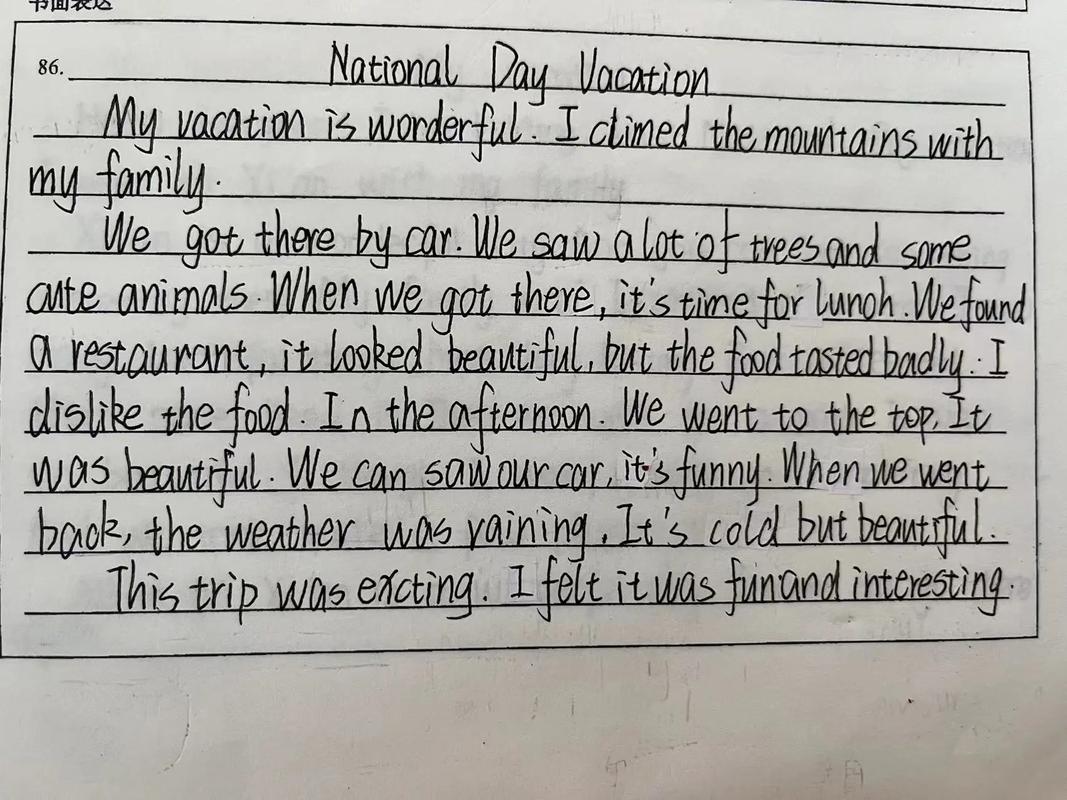 书面表达
86. National Day Vacation
My vacation is worderful. I climed the mountains with
my family.
We got there by car. We saw a lot of trees and some
cute animals. When we got there, it's time for lunch. We found
a restaurant, it looked beautiful, but the food tasted badly. I
dislike the food. In the afternoon. We went to the top. It
was beautiful. We can saw our car, it's funny. When we went
back, the weather was raining. It's cold but beautiful.
This trip was excting. I felt it was fun and interesting.